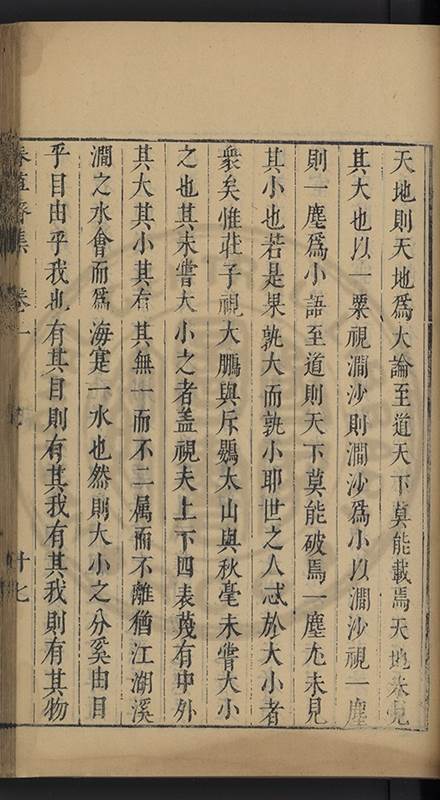 天地則天地爲大論至道天下莫能載焉天地未見
其大也以一粟視澗沙則澗沙爲小以澗沙視一塵
則一塵爲小語至道則天下莫能破焉一塵尢未見
其小也若是果孰大而孰小耶世之人忒於大小者
衆矣惟莊子視大鵬與斥鷃太山與秋毫未嘗大小
之也其未嘗大小之者盖視夫上下四表蔑有中外
其大其小其有其無一而不二属而不離猶江湖溪
澗之水會而爲海寔一水也然則大小之分奚由目
乎目由乎我也有其目則有其我有其我則有其物
集 卷一 十七